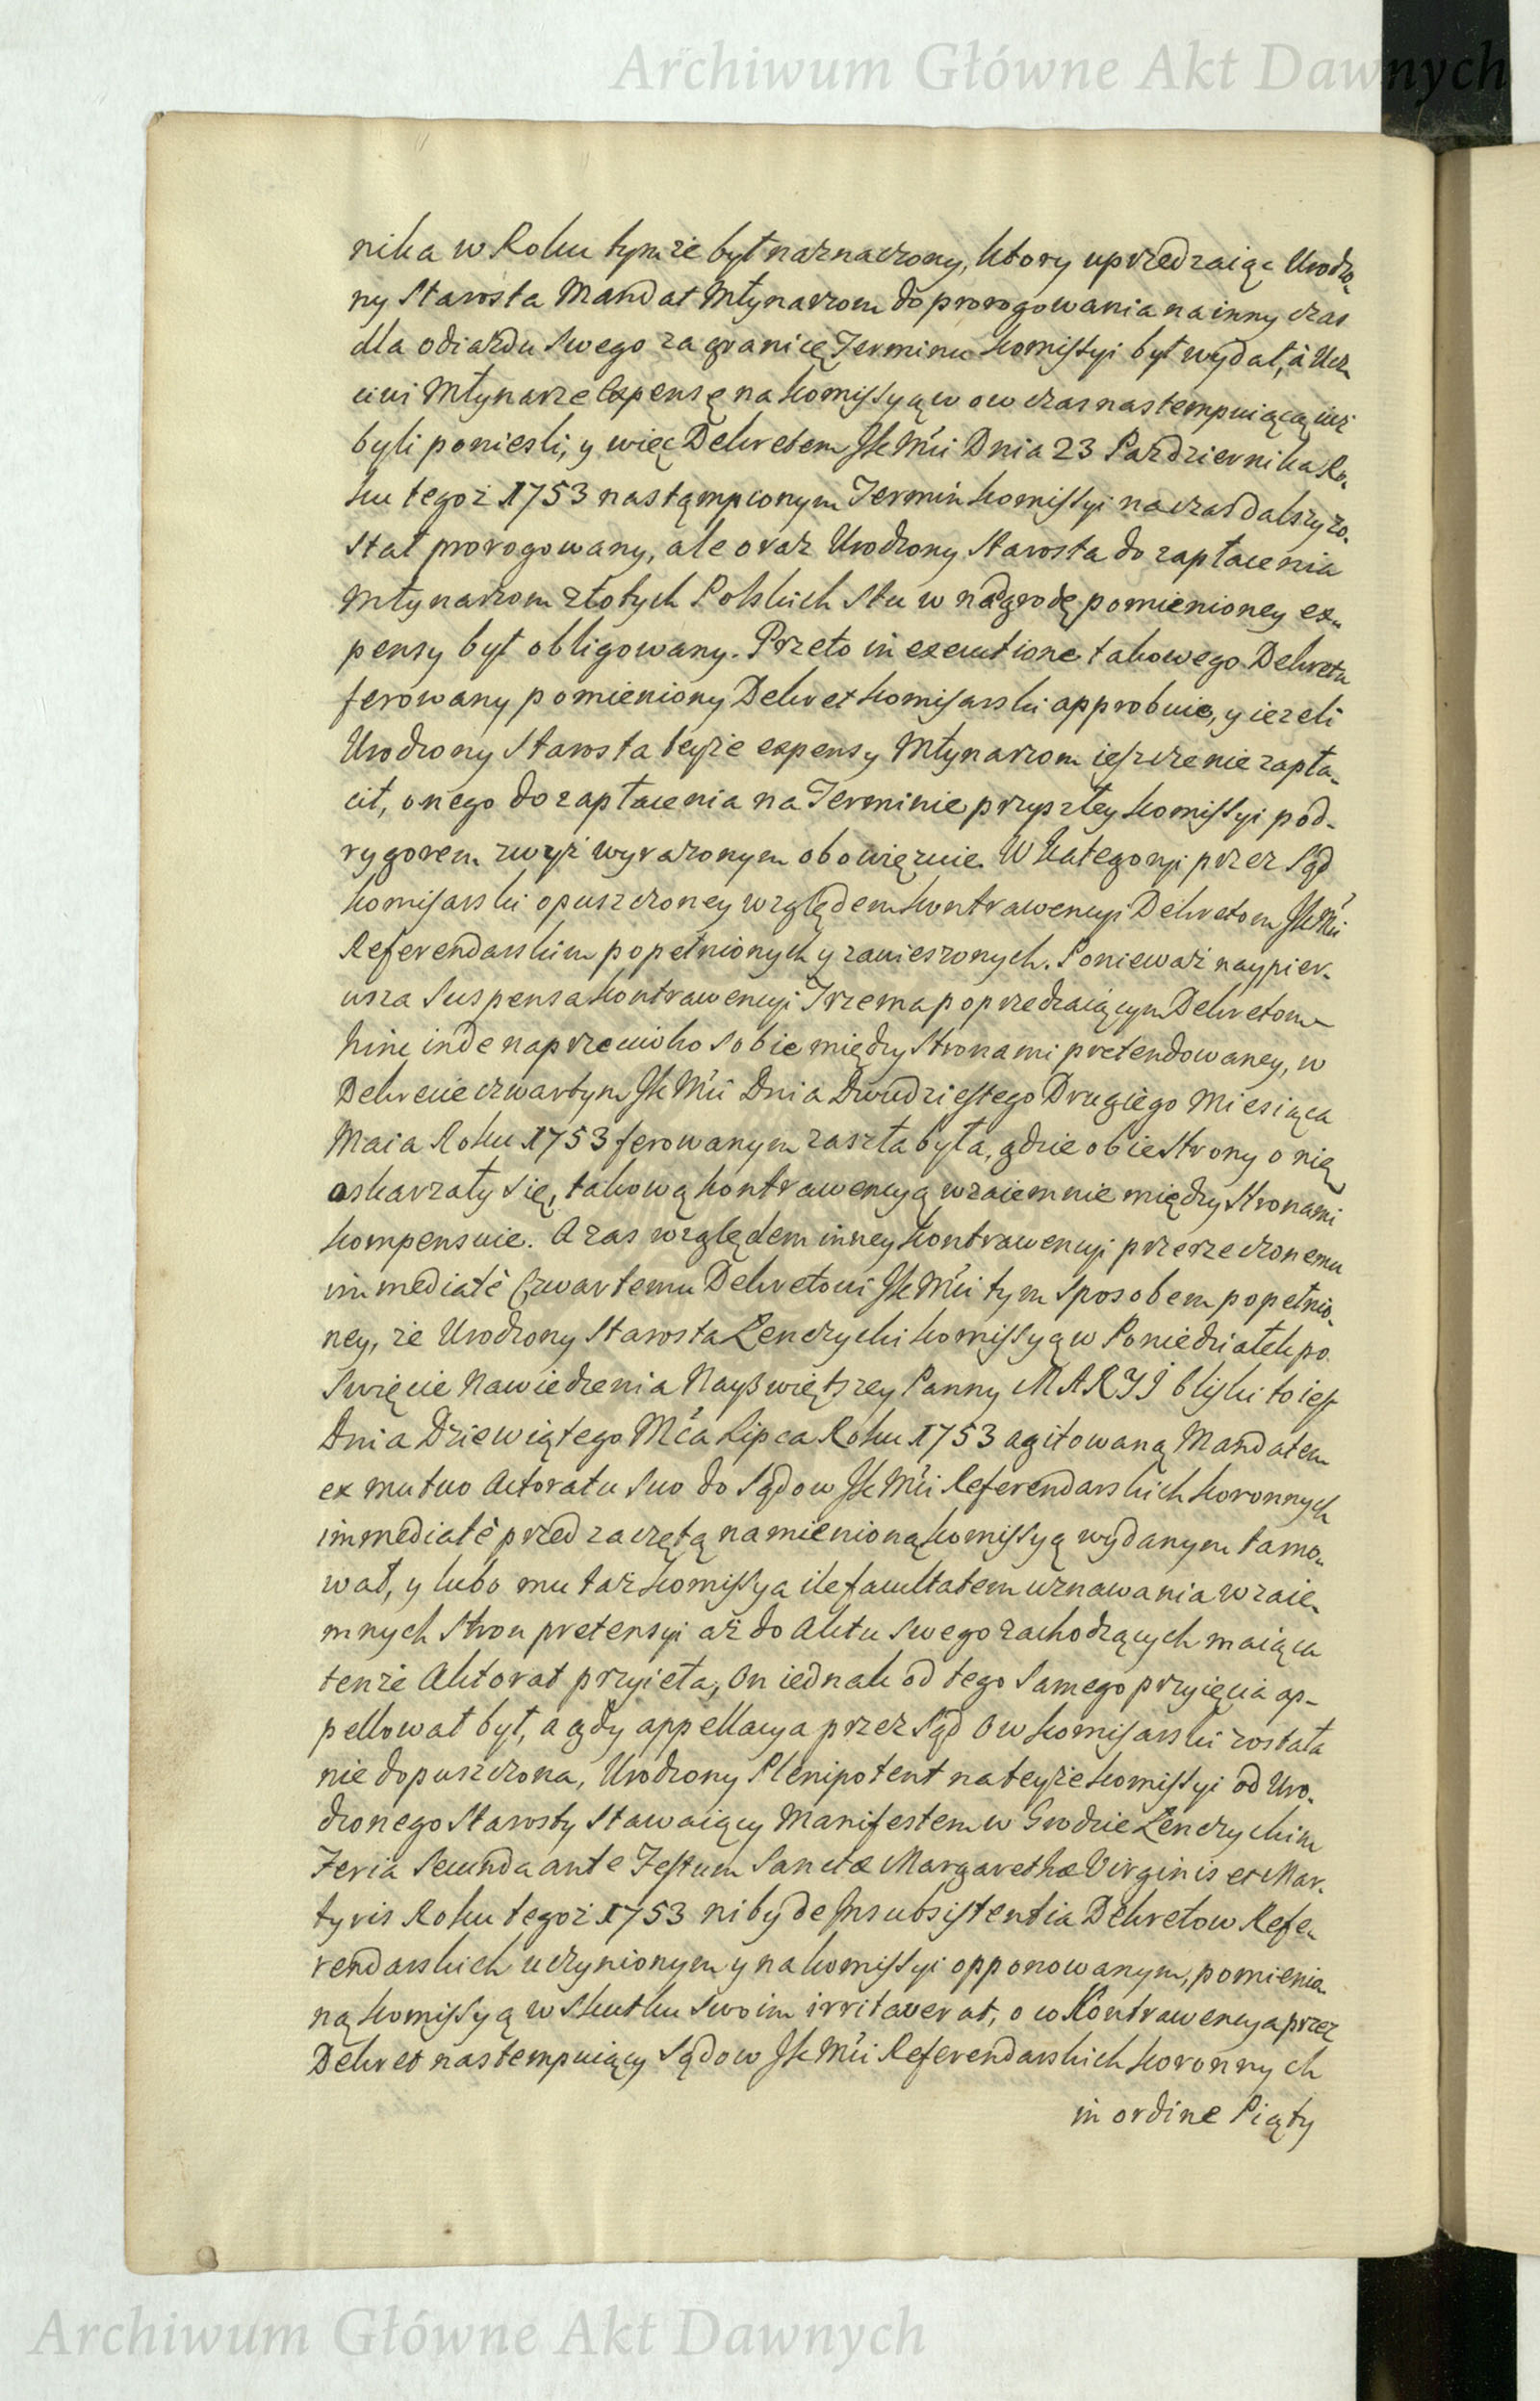 Archiwum Główne Akt Dawnych
nika w Roku tymże był naznaczony, ktory uprzedzaiąc Urodzo-
ny Starosta Mandat Młynarzom do prorogowania na inny czas
dla odiazdu swego za granicę Terminu Kommissyi był wydał, à Ucz-
ciwi Młynarze Expensę na Kommissyą w ow czas nastempuiącą iuż
byli poniesli, y więc Dekretem JKMći Dnia 23 Pazdziernika Ro-
ku tegoż 1753 nastąmpionym Termin Komissyi na czas dalszy zo-
stał prorogowany, ale oraz Urodzony Starosta do zapłacenia
Młynarzom złotych Polskich Stu w nadgrodę pomienioney ex-
pensy był obligowany. Przeto in executione takowego Dekretu
ferowany pomieniony Dekret Komisarski approbuie, y ieżeli
Urodzony Starosta teyże expensy Młynarzom ieszcze nie zapła-
cił, onego do zapłacenia na Terminie przyszłey Komissyi pod-
rygorem zwyż wyrażonym obowięzuie. W Kategoryi przez Sąd
Komisarski opuszczoney względem Kontrawencyi Dekretom JKMći
Referendarskim popełnionych y zawieszonych. Ponieważ naypier-
wsza Suspensa Kontrawencyi Trzema poprzedzaiącym Dekretom
hinc inde naprzeciwko sobie między Stronami pretendowaney, w
Dekrecie czwartym JKMći Dnia Dwudziestego Drugiego Miesiąca
Maia Roku 1753 ferowanym zaszła była, gdzie obie Strony o nię
oskarżały się, takową Kontrawencyą wzaiemnie między Stronami
kompensuie. A zas względem inney Kontrawencyi przerzeczonemu
immediatè Czwartemu Dekretowi JKMći tym sposobem popełnio-
ney, że Urodzony Starosta Łenczycki Komissyą w Poniedziałek po
Swięcie Nawiedzenia Nayswiętszey Panny MARYI bliski to iest
Dnia Dziewiątego Mća Lipca Roku 1753 agitowaną Mandatem
ex mutuo Actoratu suo do Sądow JKMći Referendarskich Koronnych
immediatè przed zaczętą namienioną Komissyą wydanym tamo-
wał, y lubo mu taż Komissya ile facultatem uznawania wzaie-
mnych Stron pretensyi aż do Aktu swego zachodzących maiąca
tenże Aktorat przyięła, on iednak od tego samego przyięcia ap-
pellował był, a gdy appellacya przez Sąd ow Komisarski została
nie dopuszczona, Urodzony Plenipotent na teyże Komissyi od Uro-
dzonego Starosty Stawaiący Manifestem w Grodzie Łenczyckim
Feria Secunda ante Festum Sanctæ Margarethæ Virginis et Mar-
tyris Roku tegoż 1753 niby de Insubsistentia Dekretow Refe-
rendarskich uczynionym y na Komissyi opponowanym, pomienio-
ną Komissyą w Skutku swoim irritaverat, o co Kontrawencya przez
Dekret nastempuiący Sądow JKMći Referendarskich Koronnych
in ordine Piąty
Archiwum Główne Akt Dawnych